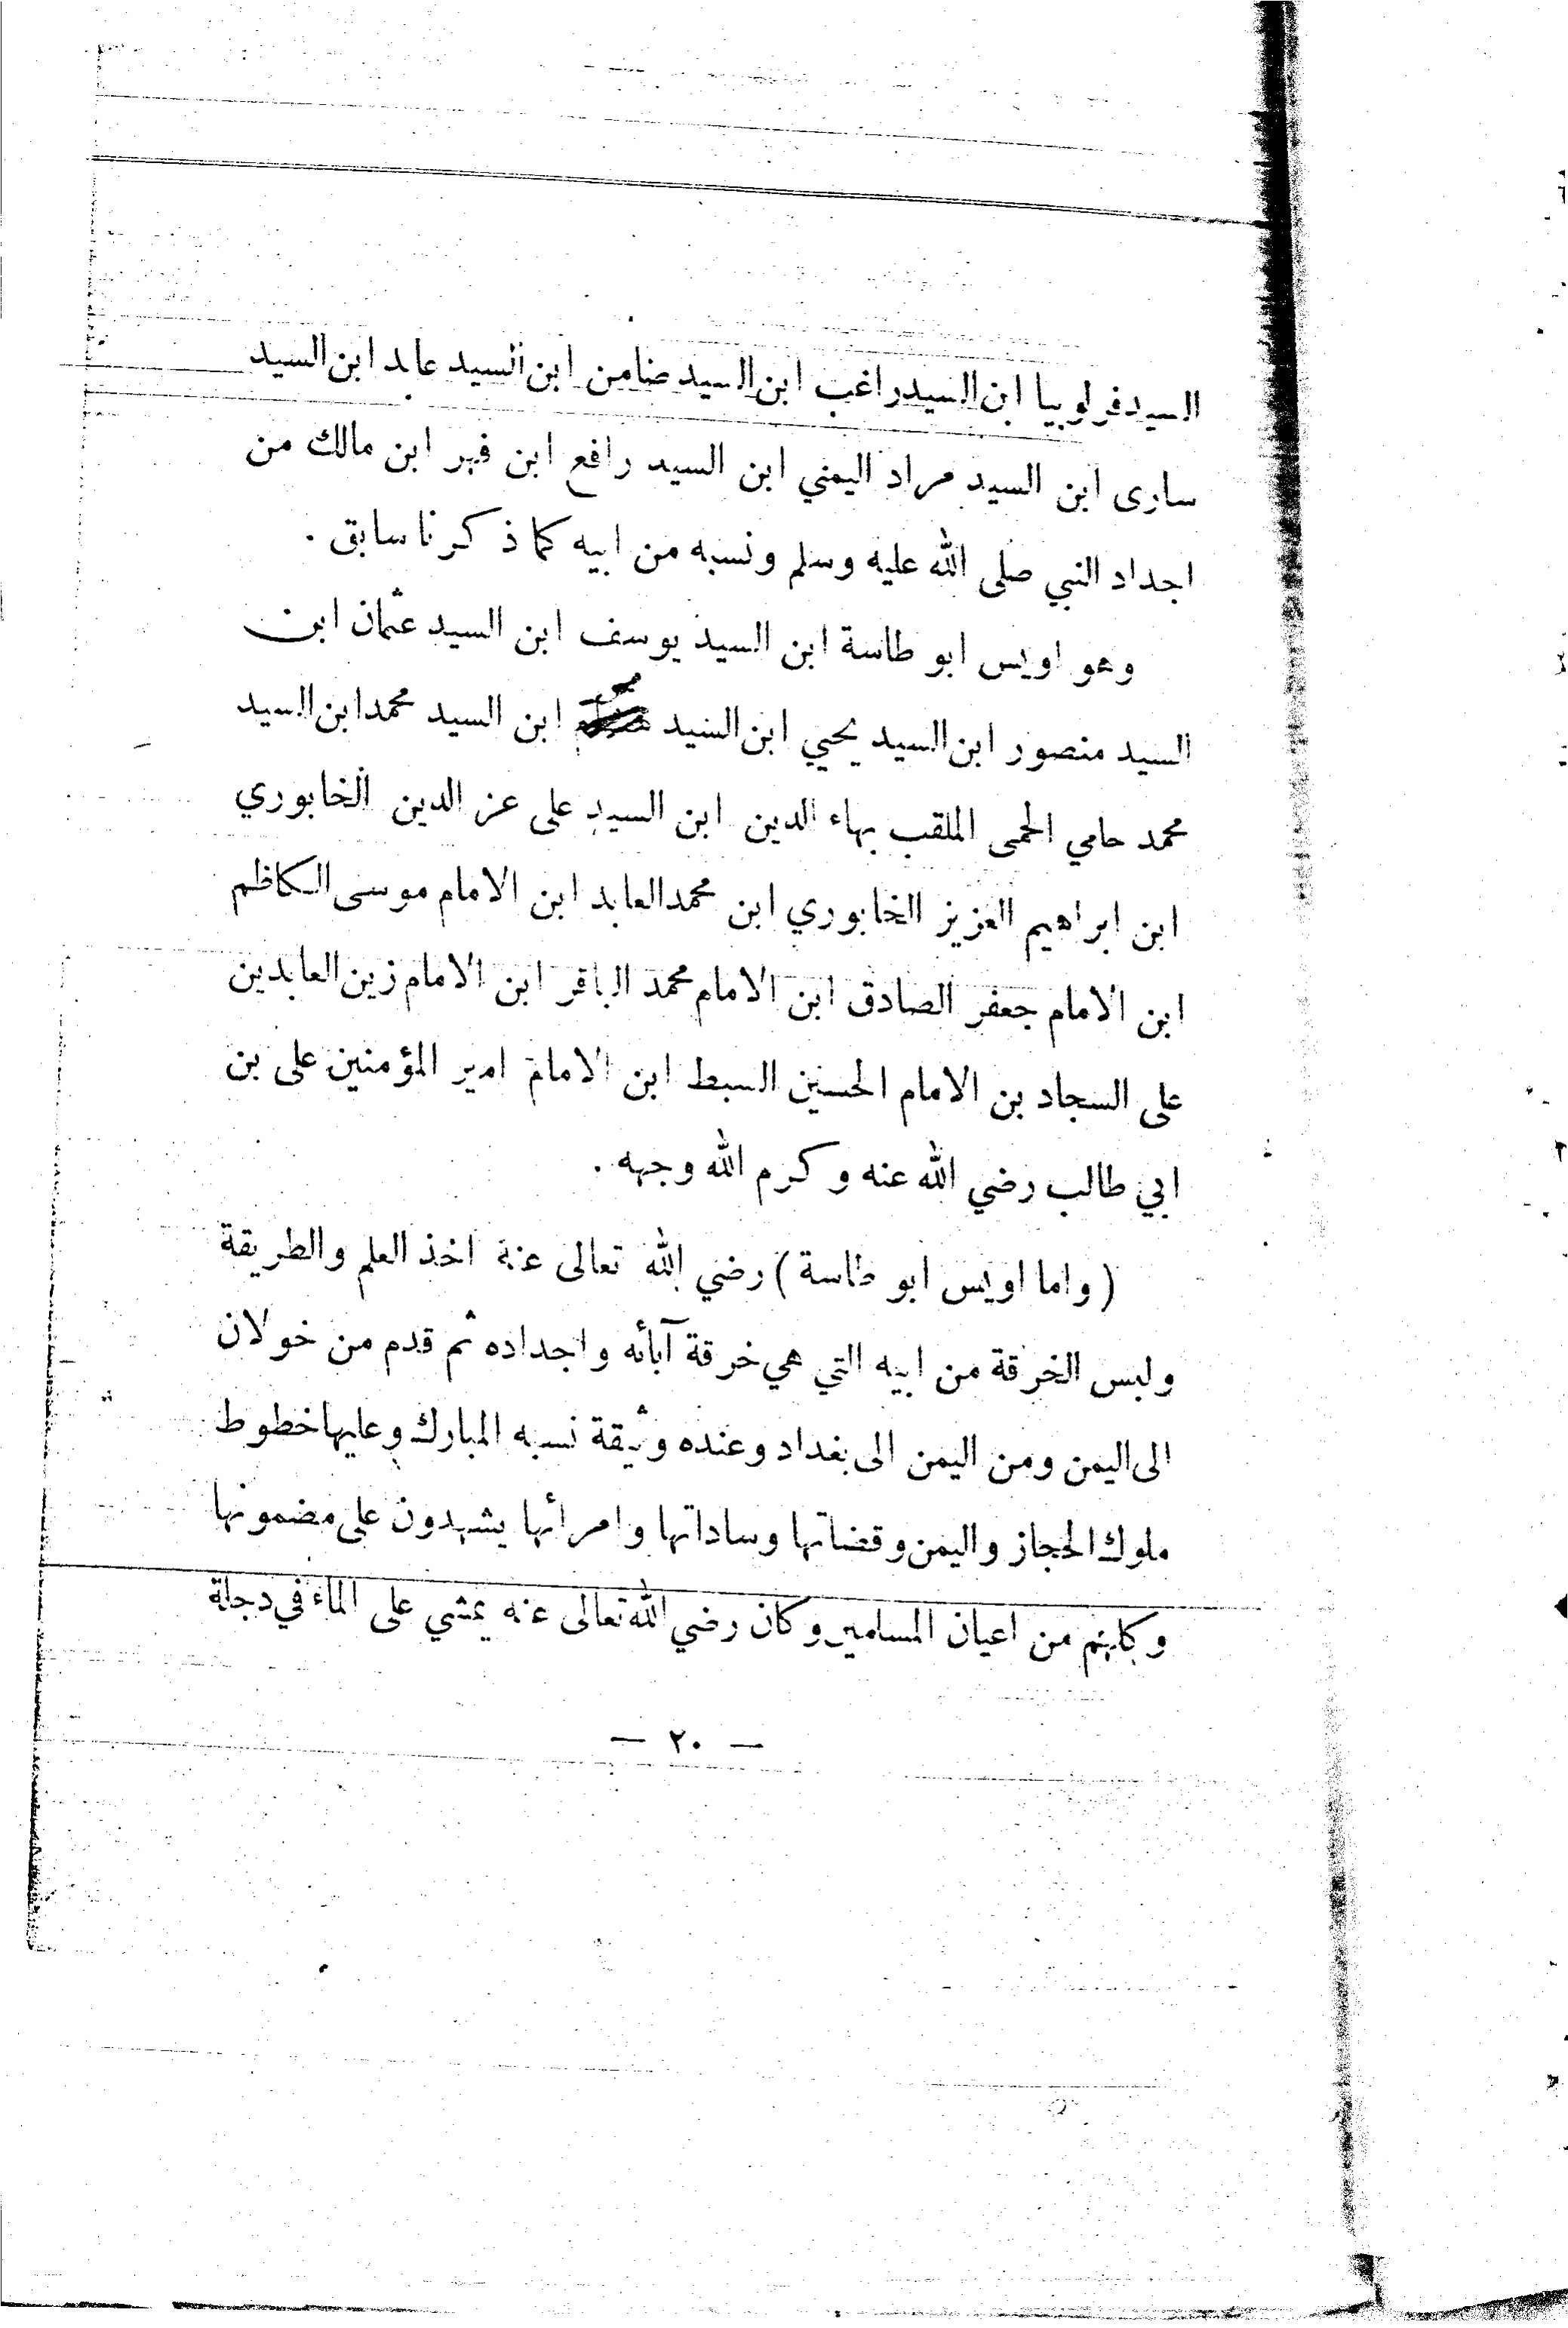 السيد فرلوبيا ابن السيد راغب ابن السيد ضامن ابن السيد عابد ابن السيد
سارى ابن السيد مراد اليمني ابن السيد رافع ابن فهر ابن مالك من
اجداد النبي صلى الله عليه وسلم ونسبه من ابيه كما ذكرنا سابق .
وهو اويس ابو طاسة ابن السيد يوسف ابن السيد عثمان ابن
السيد منصور ابن السيد يحيي ابن السيد ابن السيد محمد ابن السيد
محمد حامي الحمى الملقب بهاء الدين ابن السيد على عز الدين الخابوري
ابن ابراهيم العزيز الخابوري ابن محمد العابد ابن الامام موسى الكاظم
ابن الامام جعفر الصادق ابن الامام محمد الباقر ابن الامام زين العابدين
على السجاد بن الامام الحسين السبط ابن الامام امير المؤمنين على بن
ابي طالب رضي الله عنه وكرم الله وجهه .
( واما اويس ابو طاسة ) رضي الله تعالى عنه اخذ العلم والطريقة
ولبس الخرقة من ابيه التي هي خرقة آبأئه واجداده ثم قدم من خولان
الى اليمن ومن اليمن الى بغداد وعنده وثيقة نسبه المبارك وعليها خطوط
ملوك الحجاز واليمن وقضاتها وساداتها وامرأئها يشهدون على مضمونها
وكلهم من اعيان المسلمين وكان رضي الله تعالى عنه يمشي على الماء في دجلة
— ٢٠ —